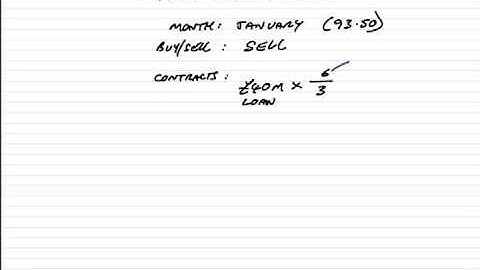 MONTH: JANUARY (93.50)
BUY/SELL: SELL
CONTRACTS: £40M × 6/3
LOAN